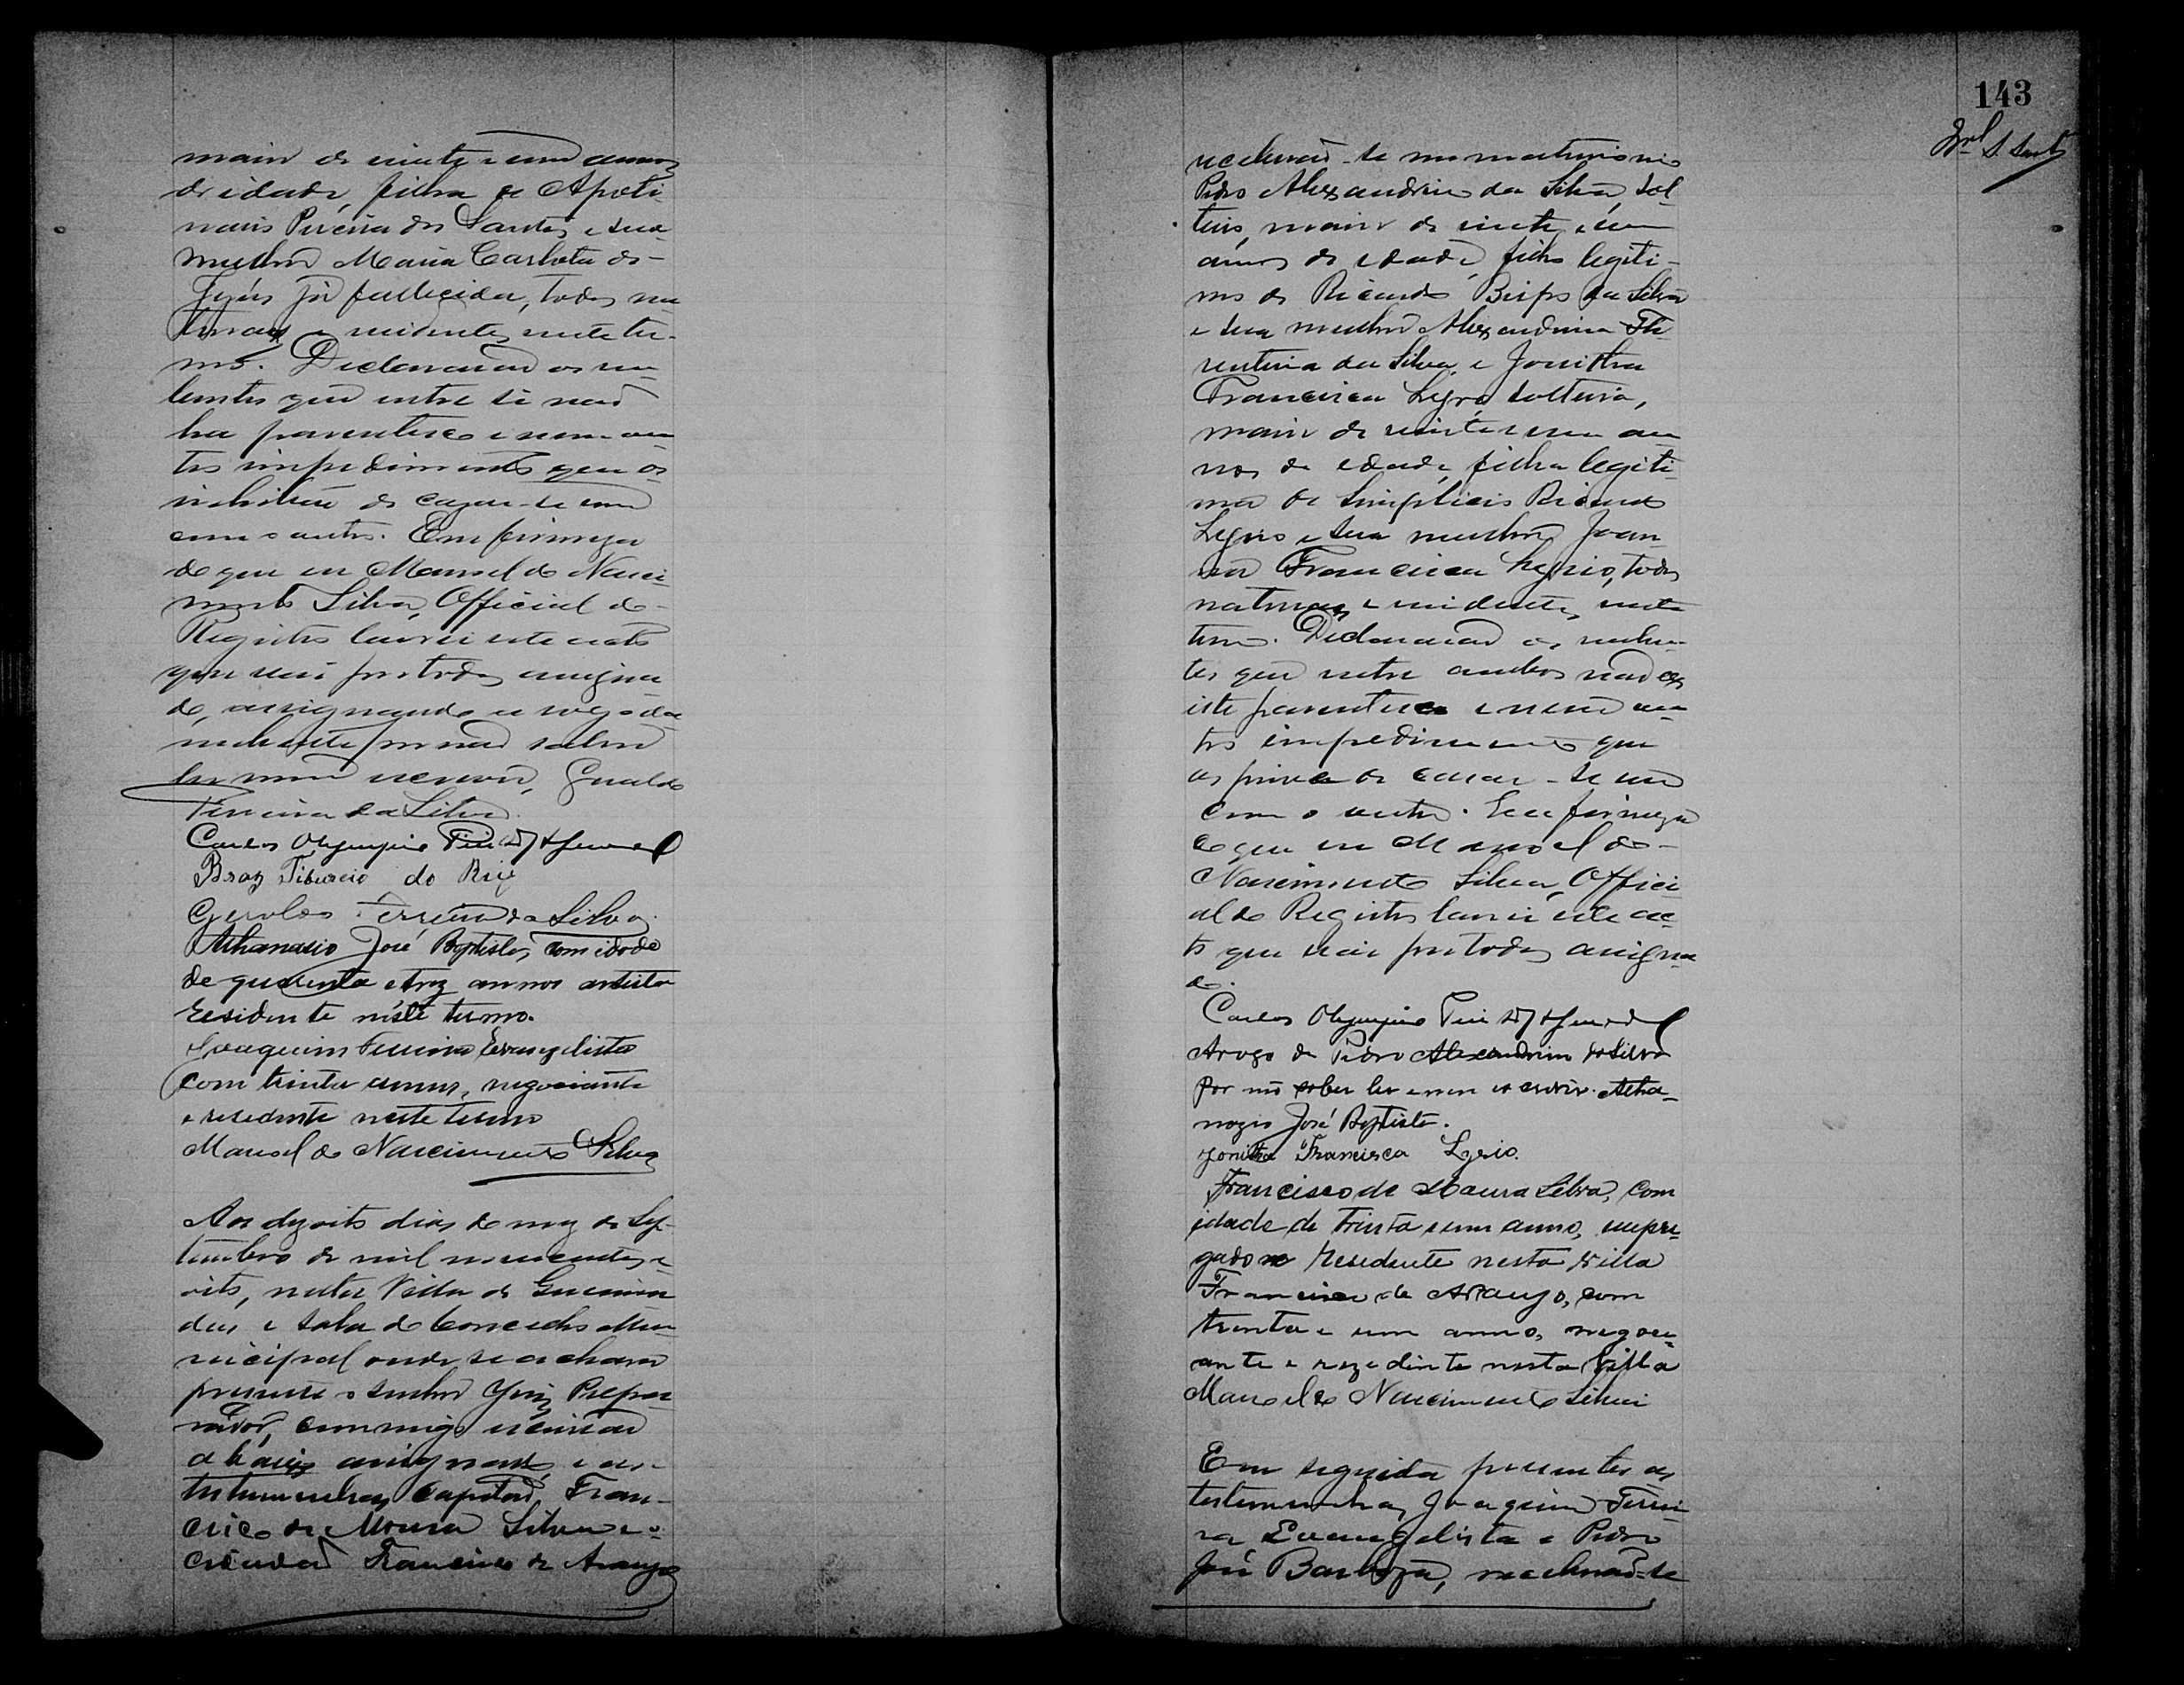 maior de vinte e um annos
de idade, filha de Apoli-
nario Pereira dos Santos e sua
mulher Maria Carlota de
Jesus já fallecida, todos na
turaes e residentes neste ter-
mo. Declararam os nu
bentes que entre si não
ha parentesco e nem ou
tro impedimento que os
inhiba de cazar-se um
com o outro. Em firmeza
do que eu Manoel do Nasci-
mento Silva, Official do
Registro lavrei este acto
que vai por todos assigna
do, assignando a rogo da
nubente por não saber
ler nem escrever, Geraldo
Ferreira da Silva.
Carlos Olympio
Braz Tiburcio do
Geraldo Ferreira da Silva
Athanasio José Baptista, com idade
de quarenta e trez annos artista
residente néste termo.
Joaquim Ferreira Evangelista
com trinta annos, negociante
e residente neste termo
Manoel do Nascimento Silva
Aos dezoito dias do mez de Se-
tembro de mil novecentos e
oito, nesta Villa de
e sala do Concelho Mu
nicipal onde se achava
presente o senhor Juiz Prepa
rador, commigo escrivão
abaixo assignado e as
testemunhas capitão Fran-
cisco de Moura Silva e o
cidadão Francisco de Araujo
143
receberão-se em matrimonio
Pedro Alexandrino da Silva, sol
teiro, maior de vinte e um
annos de edade, filho legiti-
mo de Ricardo da Silva
e sua mulher Alexandrina Flo
rentina da Silva, e Jonitha
Francisca Lyrio solteira,
maior de vinte e um an
nos de edade, filha legiti-
ma de Simplicio Ricardo
Lyrio e sua mulher Joan
na Francisca Lyrio, todos
naturaes e residentes neste
termo. Declararão os nuben
tes que entre ambos não ex
iste parentesco e nem ou
tro impedimento que
os prive de casar-se um
com o outro. Em firmeza
do que eu Manoel do
Nascimento Silva, Offici
al do Registro lavrei este ac
to que vai por todos assigna
do.
Carlos Olympio
Arogo de Pedro Alexandrino da Silva
por não saber ler e nem escrever. Atha-
nazio José Baptista.
Jonitha Francisca Lyrio.
Francisco de Moura Silva, com
idade de trinta e um anno, empre-
gado e residente nesta Villa
Francisco de Araujo, com
trinta e um anno, negoci-
ante e rezedinte nesta Villa
Manoel do Nascimento Silva
Em seguida presentes as
testemunhas Joaquim Ferrei
ra Evangelista e Pedro
José Barboza, receberão-se